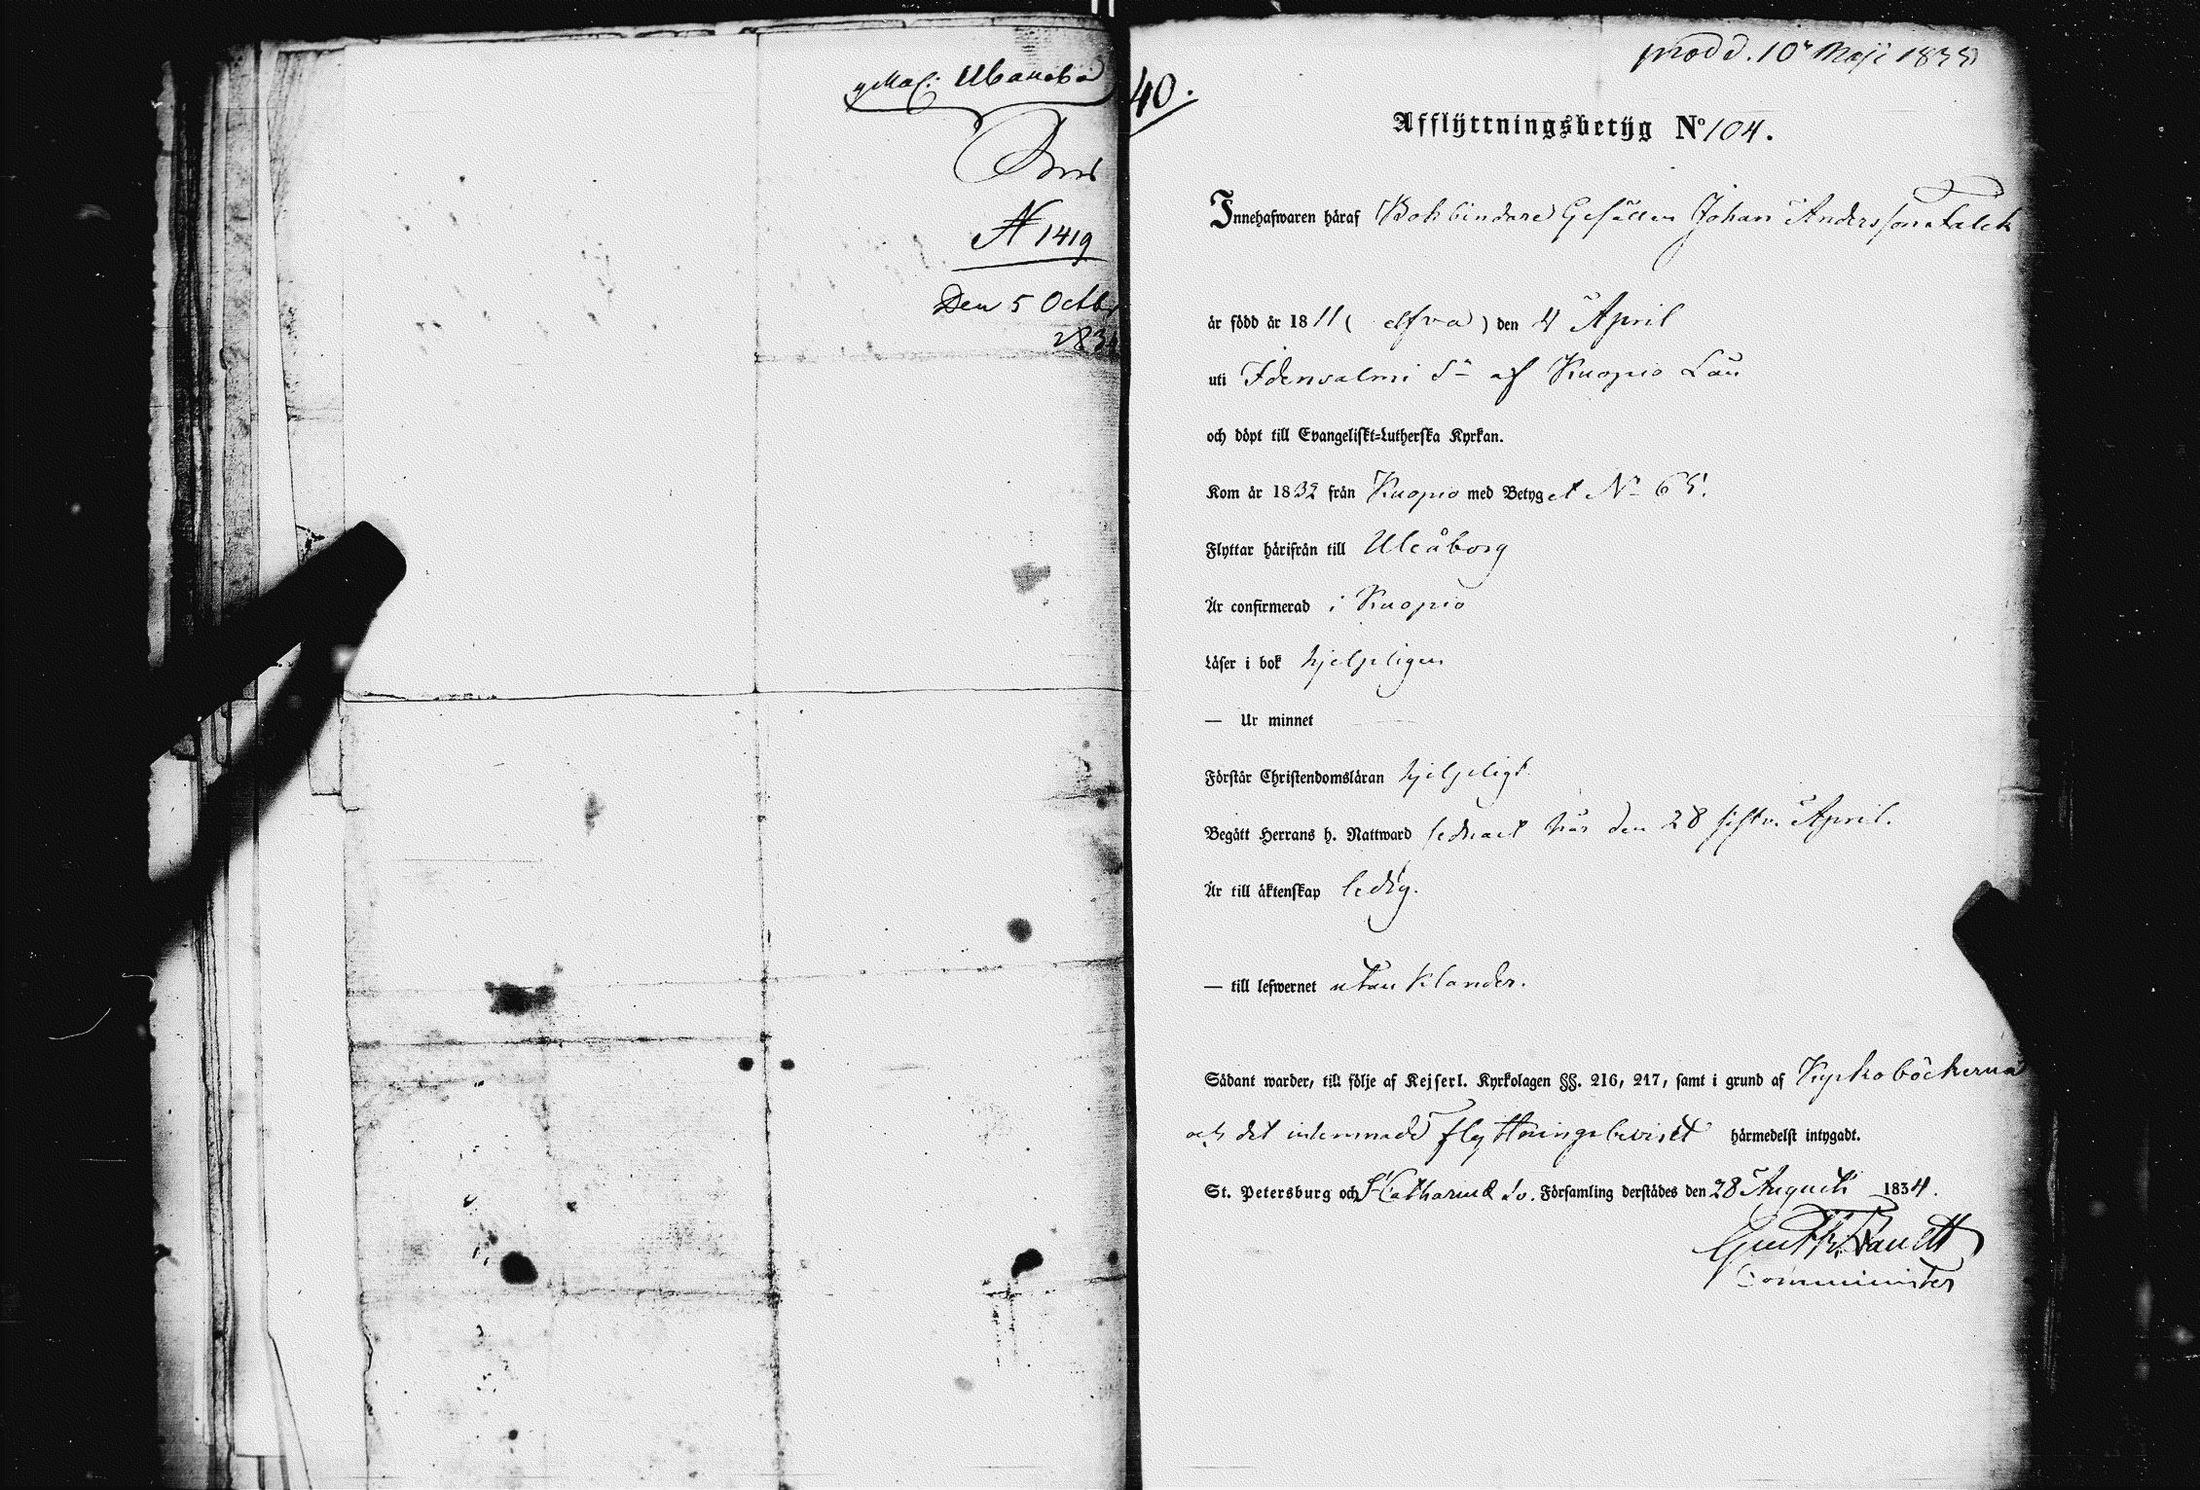 Иванова
N 1419
Den 5 Octbr
183
40.
prodd. 10 Maji 1835
Afflyttningsbetyg No 104.
Innehafwaren häraf Bokbindare Gesällen Johan Andersson Falck
är född år 1811 ( elfva ) den 4 April
uti Idensalmi Sn af Kuopio Län
och döpt till Evangeliskt-Lutherska Kyrkan.
Kom år 1832 från Kuopio med Betyget No 65.
Flyttar härifrån till Uleåborg
Är confirmerad i Kuopio
Läser i bok hjelpligen
— Ur minnet
Förstår Christendomsläran hjelpligt
Begått Herrans h. Nattward sednast här den 28 sistl. April.
Är till äktenskap ledig.
— till lefwernet utan klander.
Sådant warder, till följe af Kejserl. Kyrkolagen §§. 216, 217, samt i grund af Kyrkoböckerna
och det inlemnade flyttningsbeviset härmedelst intygadt.
St. Petersburg och St Catharinæ Sv. Församling derstädes den 28 Augusti 1834.
Comminister